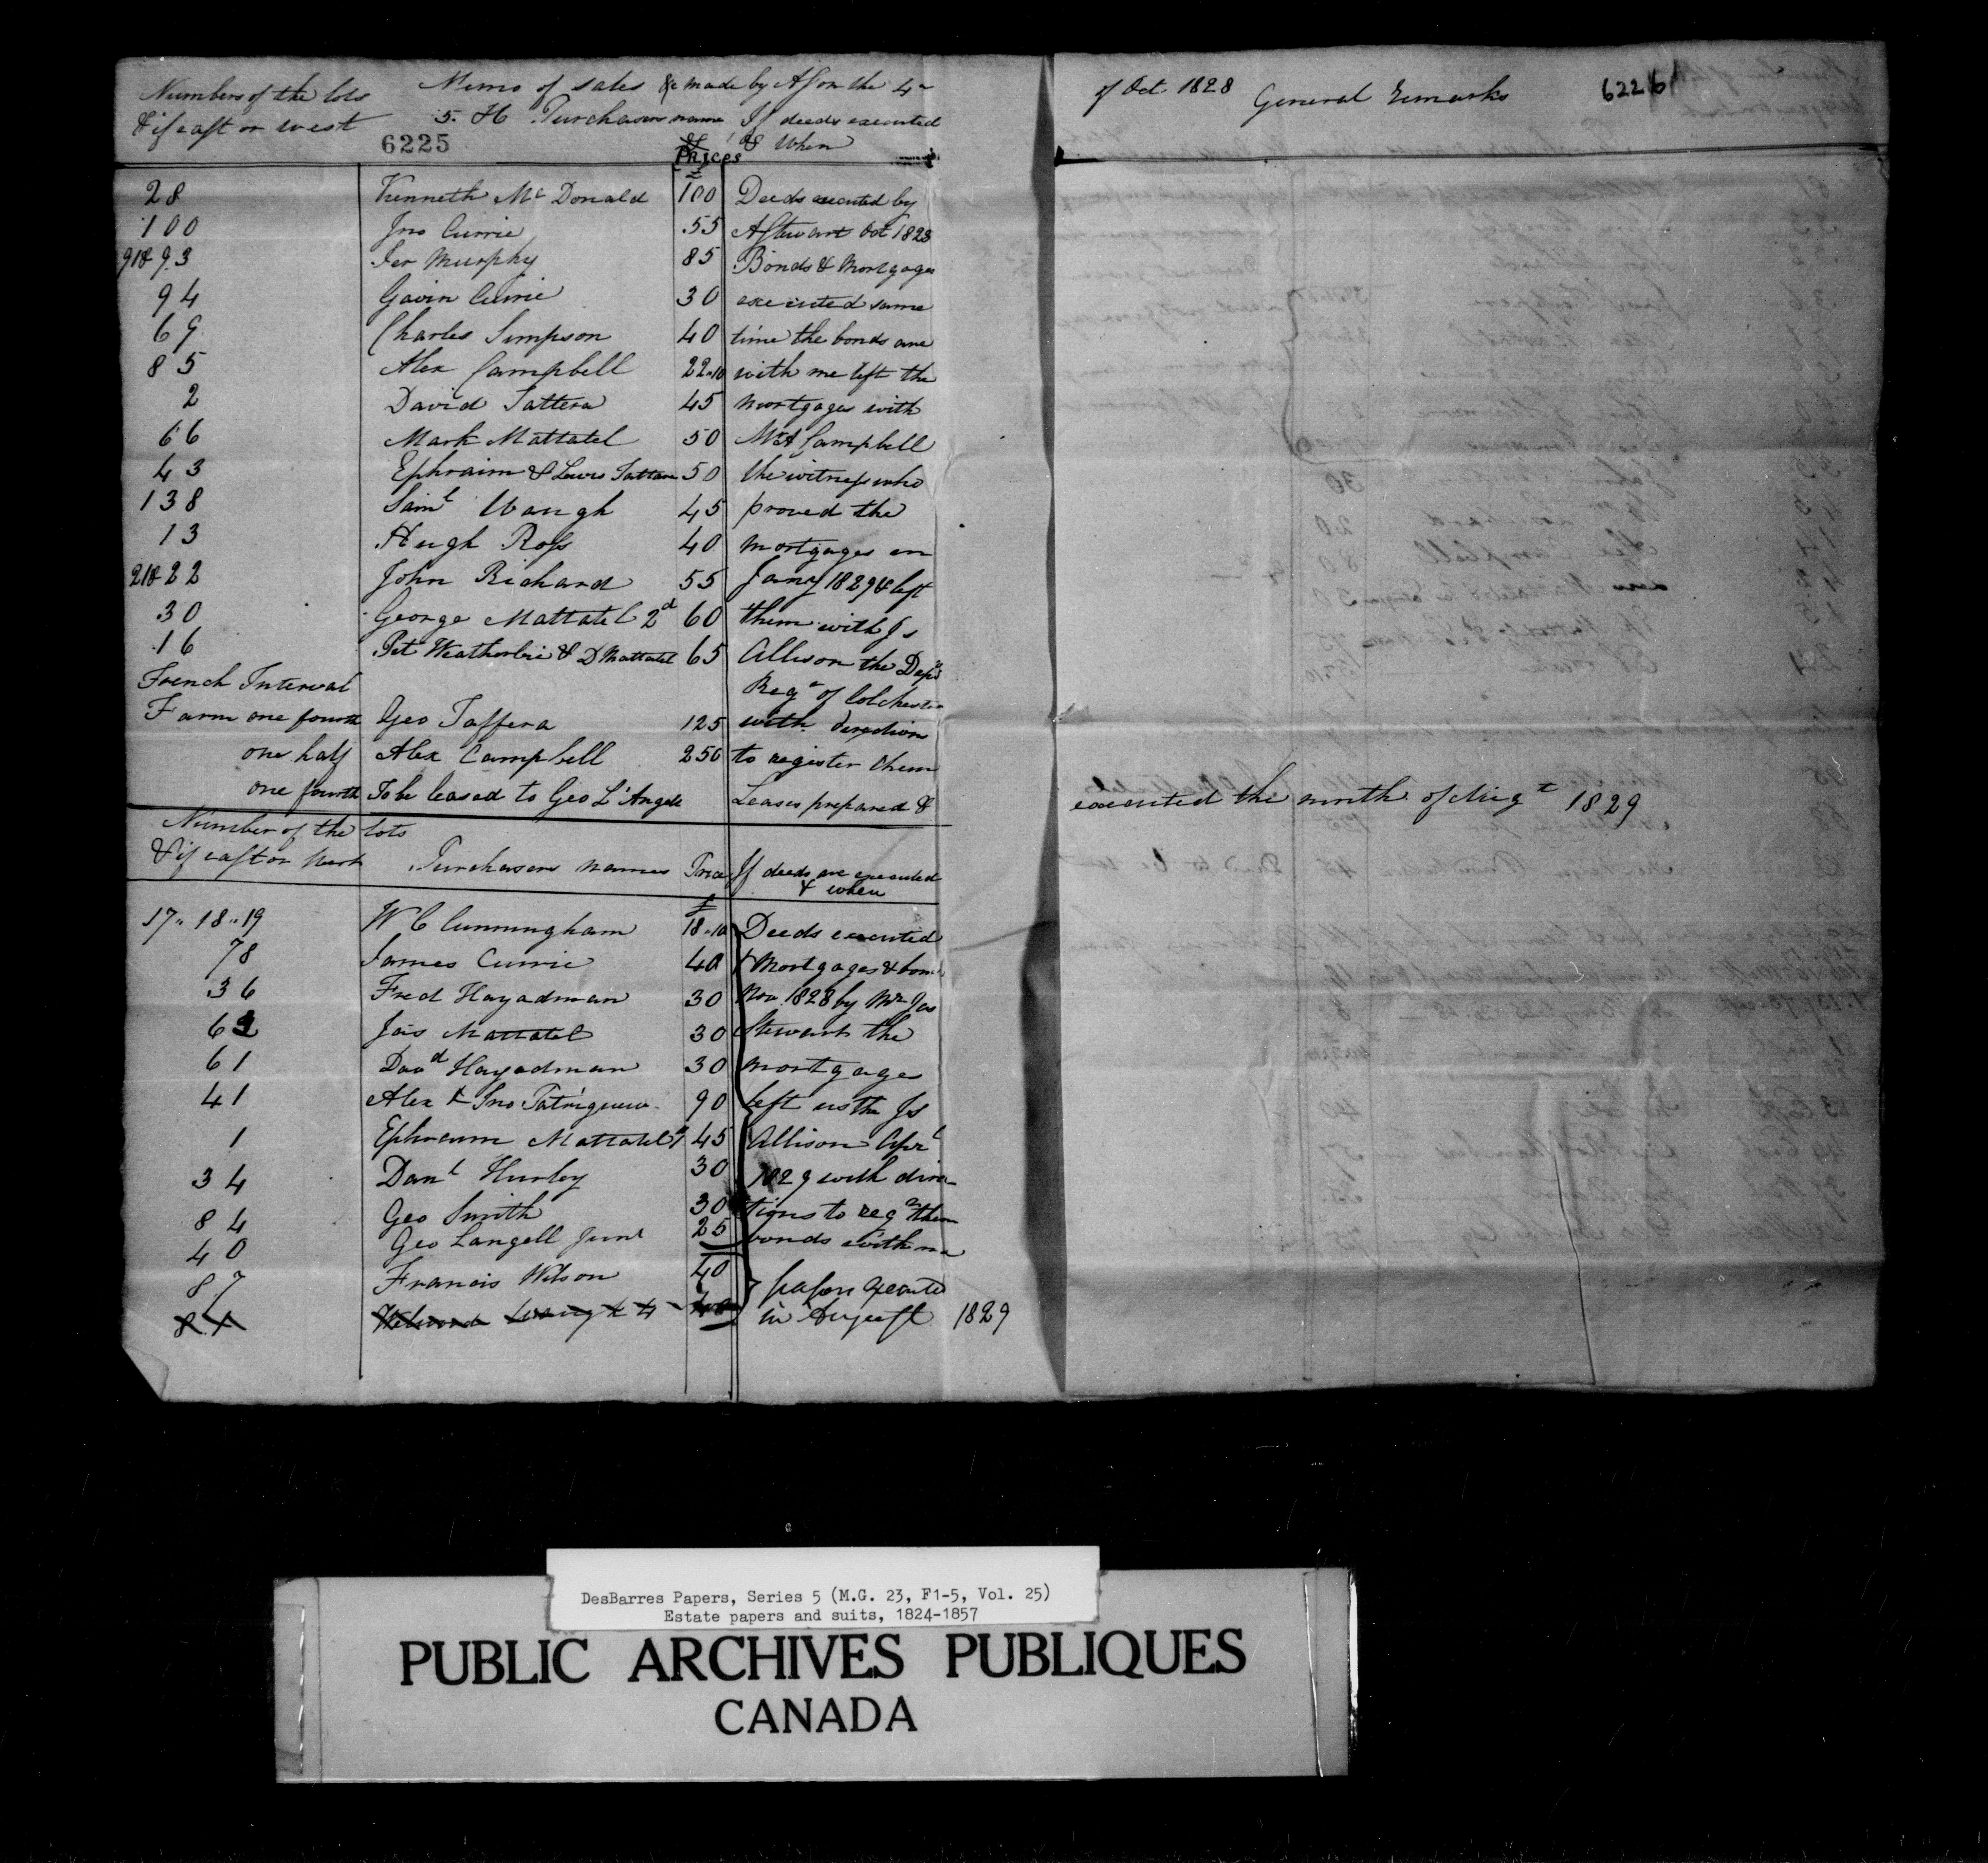 Numbers of the lots Memo of sales &c made by AS on the 4 of Oct 1828 General Remarks 6226
& if east or west 5. H Purchasers name If deeds executed
6225 Prices & When
28 Kenneth Mc Donald 100 Deeds executed by
100 Jno Currie 55 A Stewart Oct 1828
91 & 93 Jer Murphy 85 Bonds & Mortgages
94 Gavin Currie 30 executed same
69 Charles Simpson 40 time the bonds are
85 Alex Campbell 22.10 with me left the
2 David Tattera 45 mortgages with
66 Mark Mattatel 50 Mr A Campbell
43 Ephraim & Lewis Tattera 50 the witness who
138 Saml Waugh 45 proved the
13 Hugh Ross 40 mortgages in
21 & 22 John Richard 55 Jany 1829 & left
30 George Mattatel 2d 60 them with Js
16 Pet Weatherbie & D Mattatel 65 Allison the Depy
French Interval Regr of Colchester
Farm one fourth Geo Taffera 125 with direction
one half Alex Campbell 250 to register them
one fourth To be leased to Geo L'Angele Leases prepared & executed the month of Augt 1829
Number of the lots
& if east or West Purchasers names Price If deeds are executed
& when
£
17 " 18 " 19 W C Cunningham 18.10 Deeds executed
78 James Currie 40 Mortgages & bonds
36 Fred Hayadman 30 Nov 1828 by Mr Jas
62 Jas Mattatel 30 Stewart the
61 Davd Hayadman 30 mortgages
41 Alex & Jno Tatrigueu 90 left with Js
1 Ephraim Mattatel 45 Allison Aprl
34 Danl Hurley 30 1829 with direc
84 Geo Smith 30 tions to regr them
40 Geo Langell Junr 25 bonds with me
87 Francis Wilson 40 papers executed
in August 1829
DesBarres Papers, Series 5 (M.G. 23, F1-5, Vol. 25)
Estate papers and suits, 1824-1857
PUBLIC ARCHIVES PUBLIQUES
CANADA